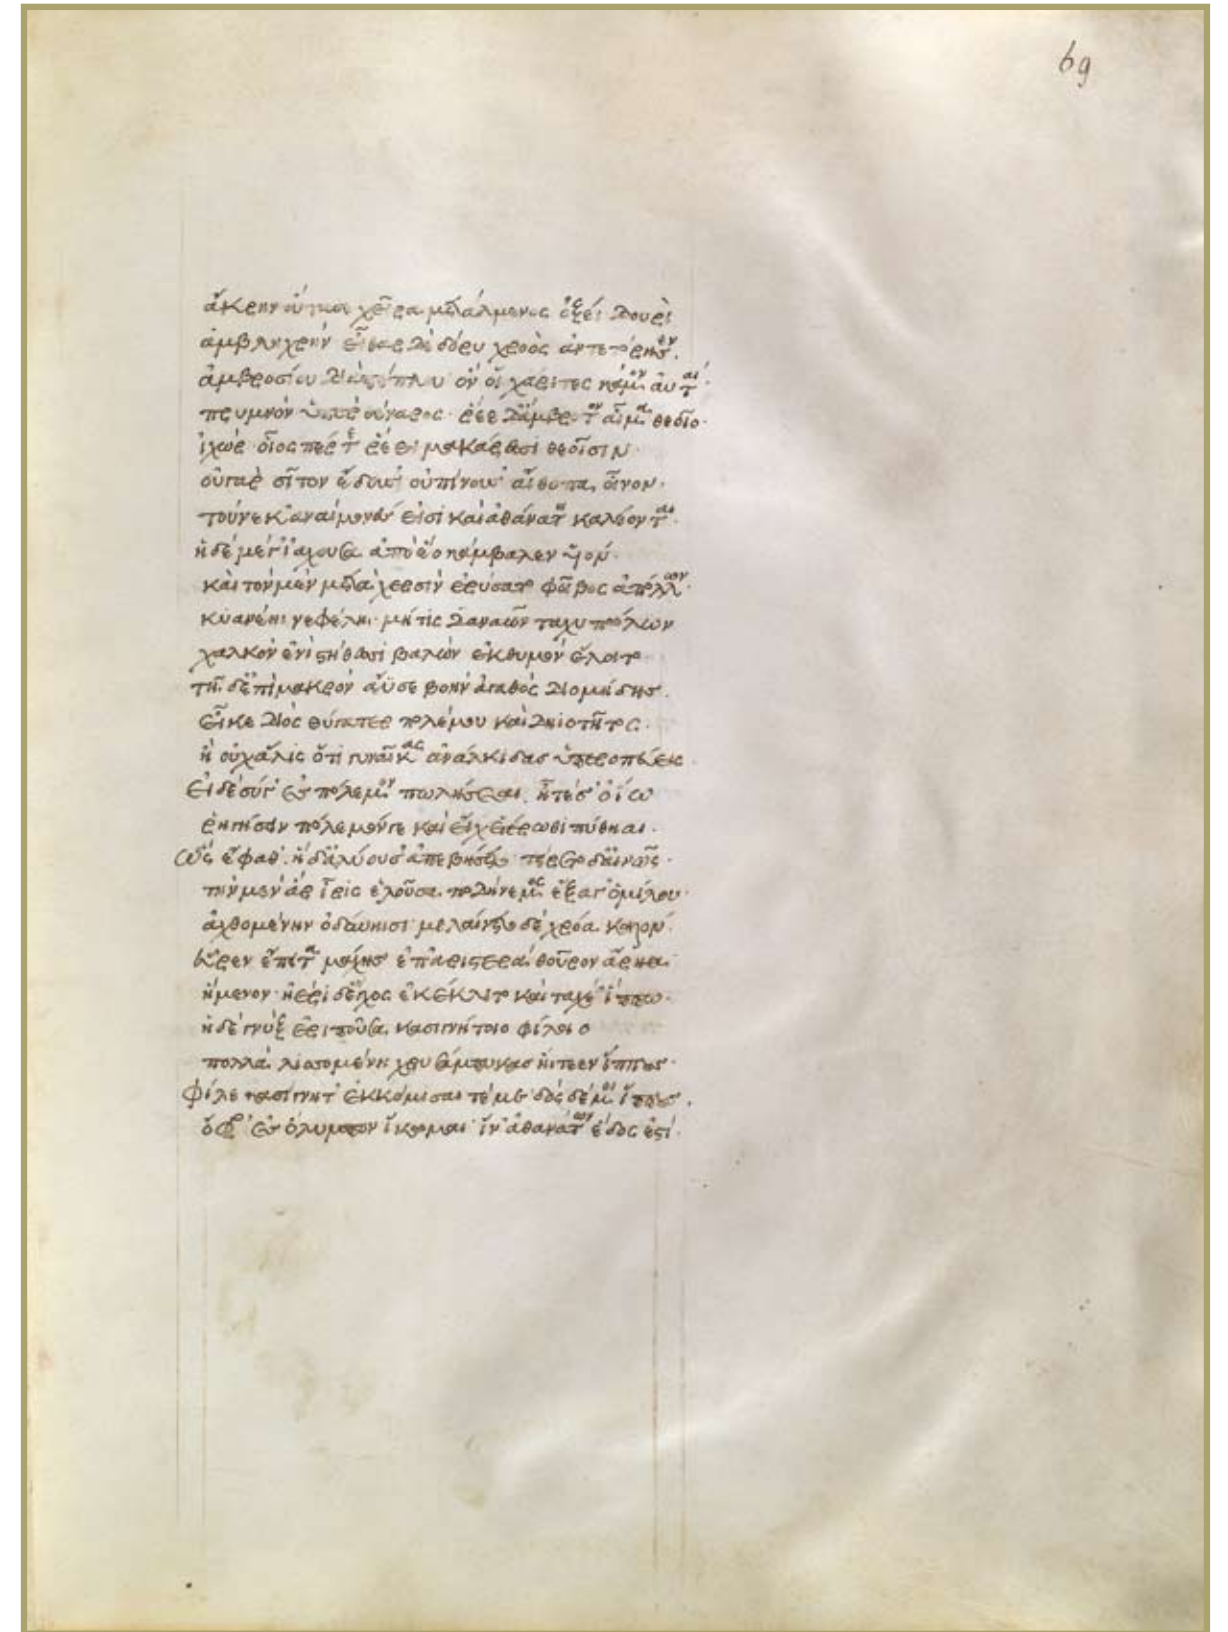 69
ἄκρην οὔτασε χεῖρα μετάλμενος ὀξέϊ δουρὶ
ἀμβληχρήν εἶθαρ δὲ δόρυ χροὸς ἀντετόρησεν.
ἀμβροσίου διὰ πέπλου ὅν οἱ χάριτες κάμον αὐταί·
πρυμνὸν ὕπερ θέναρος· ῥέε δ' ἄμβροτον αἷμα θεοῖο·
ἰχώρ· οἷος πέρ τε ῥέει μακάρεσσι θεοῖσιν·
οὐ γὰρ σῖτον ἔδουσ' οὐ πίνουσ' αἴθοπα οἶνον·
τούνεκ' ἀναίμονές εἰσι καὶ ἀθάνατοι καλέονται·
ἡ δὲ μέγ' ἰάχουσα ἀπὸ ἕο κάμβαλεν υἱόν·
καὶ τὸν μὲν μετὰ χερσὶν ἐρύσατο φοῖβος ἀπόλλων·
κυανέηι νεφέληι· μή τις δαναῶν ταχυπώλων
χαλκὸν ἐνὶ στήθεσσι βαλὼν ἐκ θυμὸν ἕλοιτο·
τῆι δ' ἐπὶ μακρὸν ἄϋσε βοὴν ἀγαθὸς διομήδης.
εἶκε διὸς θύγατερ πολέμου καὶ δηϊοτῆτος·
ἢ οὐχ ἅλις ὅττι γυναῖκας ἀνάλκιδας ἠπεροπεύεις·
εἰ δὲ σύ γ' ἐς πόλεμον πωλήσεαι, ἦ τέ σ' ὀΐω
ῥιγήσειν πόλεμόν γε καὶ εἴ χ' ἑτέρωθι πύθηαι·
ὣς ἔφαθ'. ἡ δ' ἀλύουσ' ἀπεβήσετο τείρετο δ' αἰνῶς·
τὴν μὲν ἄρ' ἶρις ἑλοῦσα ποδήνεμος ἔξαγ' ὁμίλου·
ἀχθομένην ὀδύνηισι· μελαίνετο δὲ χρόα καλόν·
εὗρεν ἔπειτα μάχης ἐπ' ἀριστερὰ θοῦρον ἄρηα·
ἥμενον· ἠέρι δ' ἔγχος ἐκέκλιτο καὶ ταχέ' ἵππω·
ἡ δὲ γνὺξ ἐριποῦσα κασιγνήτοιο φίλοιο
πολλὰ λισσομένη χρυσάμπυκας ἤιτεεν ἵππους·
φίλε κασίγνητ' ἐκκόμισαί τέ με δὸς δέ μοι ἵππους.
ὄφρ' ἐς ὄλυμπον ἵκωμαι ἵν' ἀθανάτων ἕδος ἐστί·